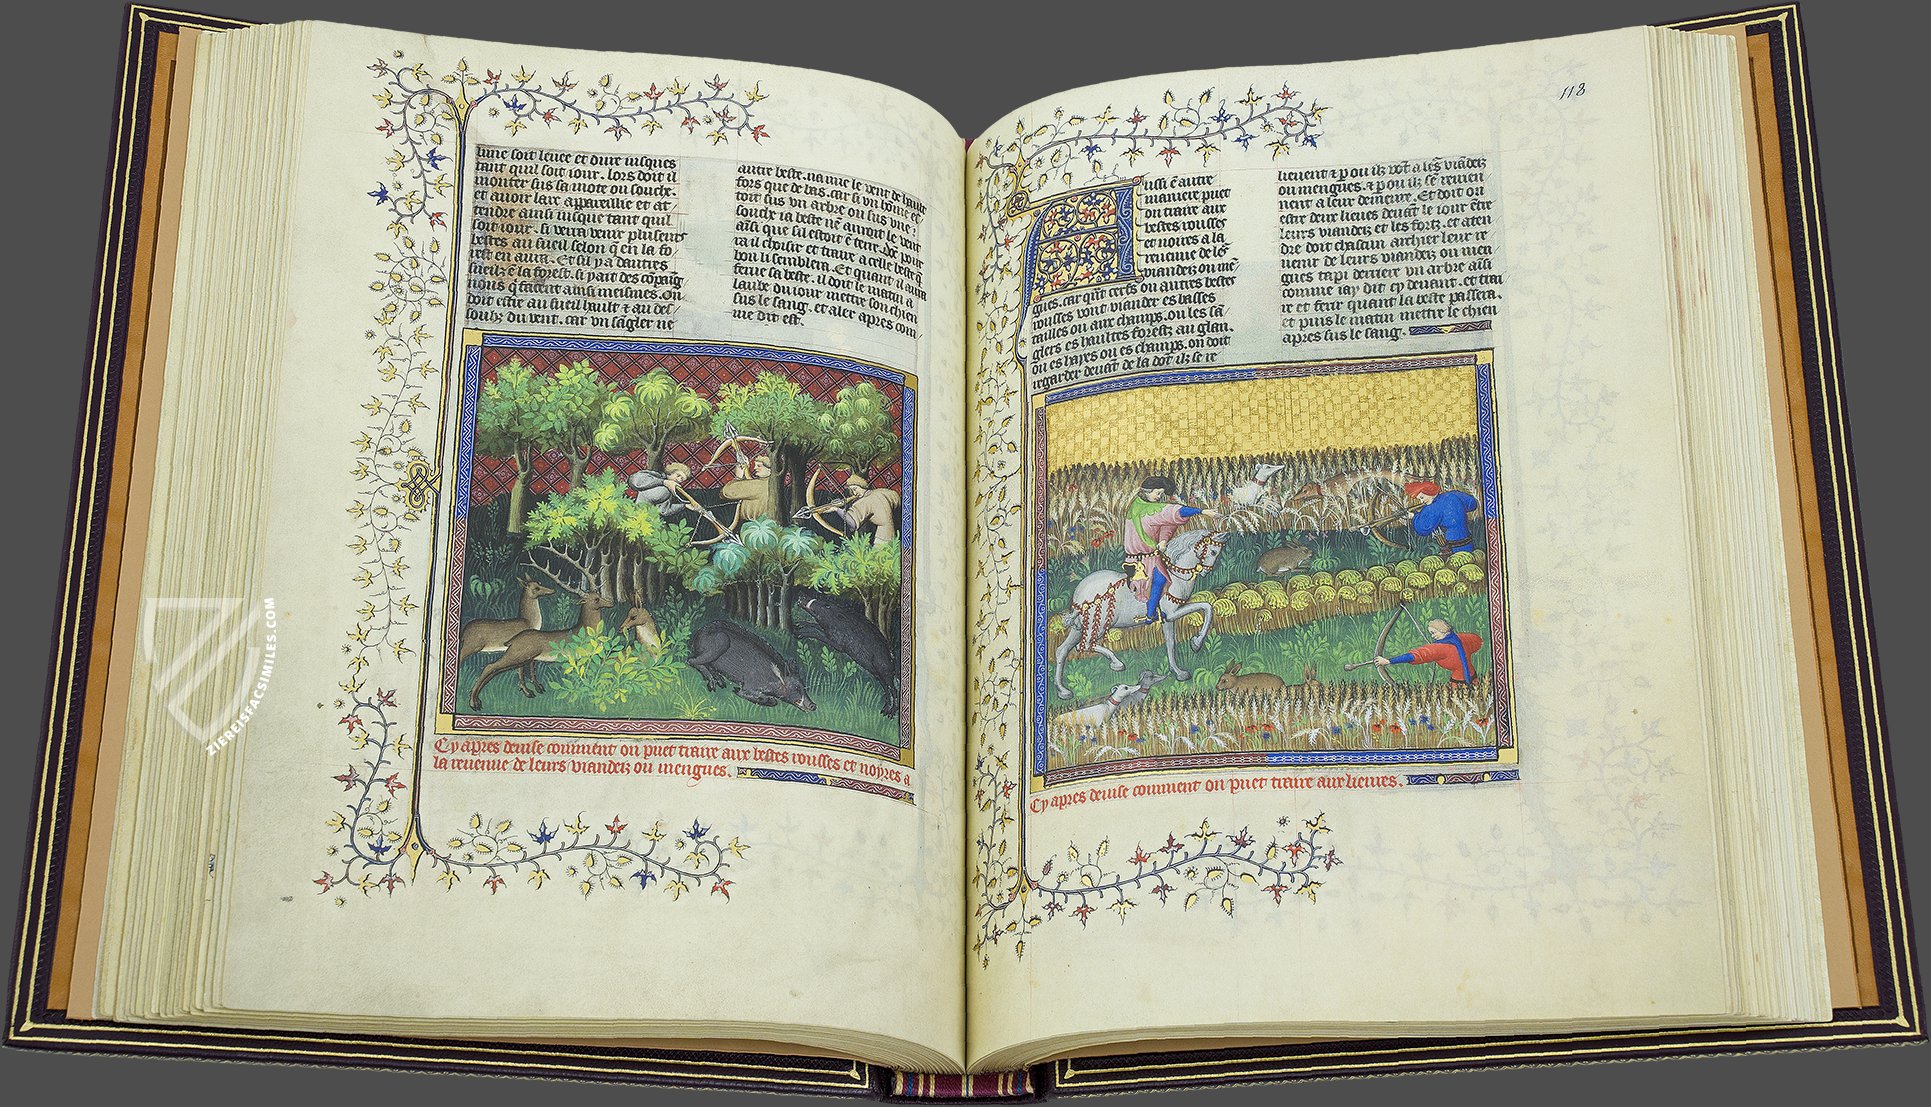 lune soit leuee et dure iusques
tant quil soit iour. lors doit il
monter sus sa mote ou souche.
et auoir larc appareillie et at
tendre ainsi iusque tant quil
soit iour. si verra venir pluseurs
bestes au sueil selon q̃ en la fo
rest en aura. Et sil y a dautres
sueilz ẽ la forest. si y ait des cõpaig
nons q̃ facent ainsi meismes. On
doit estre au sueil hault et au des
soubz du vent. car vn sãgler ne
autre beste. na nue le vent de hault
fors que de bas. car si vn home est
soit sus vn arbre ou sus vne
souche ia beste nẽ auroit le vent
aĩsi que sil estoit ẽ terre. Dõc pour
ra il choisir et traire a celle beste q̃
bon li semblera. Et quant il aura
feru sa beste. il doit le matin a
laube du iour mettre son chien
sus le sang. et aler apres com
me dit est.
Cy apres deuise comment on puet traire aux bestes rousses et noyres a
la reuenue de leurs viandeiz ou mengues.
113
Aussi ẽ autre
maniere puet
on traire aux
bestes rousses
et noires a la
reuenue de lr̃s
viandeiz ou mẽ
gues. car quãt cerfs ou autres bestes
rousses vont viander es basses
tailles ou aux champs. ou les sã
glers es haultes forestz au glan.
ou es hayes ou es champs. on doit
regarder deuãt de la dont ilz se re
lieuent et p ou ilz võt a lr̃s viãdeiz
ou mengues. et p ou ilz se reuien
nent a leur demeure. Et doit on
estre deux lieues deuãt le iour ẽtre
leurs viandeiz et les fortz. et aten
dre doit chascun archier leur re
uenir de leurs viandeiz ou men
gues tapi derriere vn arbre aĩsi
comme iay dit cy deuant. et trai
re et ferir quant la beste passera.
et puis le matin mettre le chien
apres sus le sang.
Cy apres deuise comment on puet traire aux lieures.
ZIEREISFACSIMILES.COM